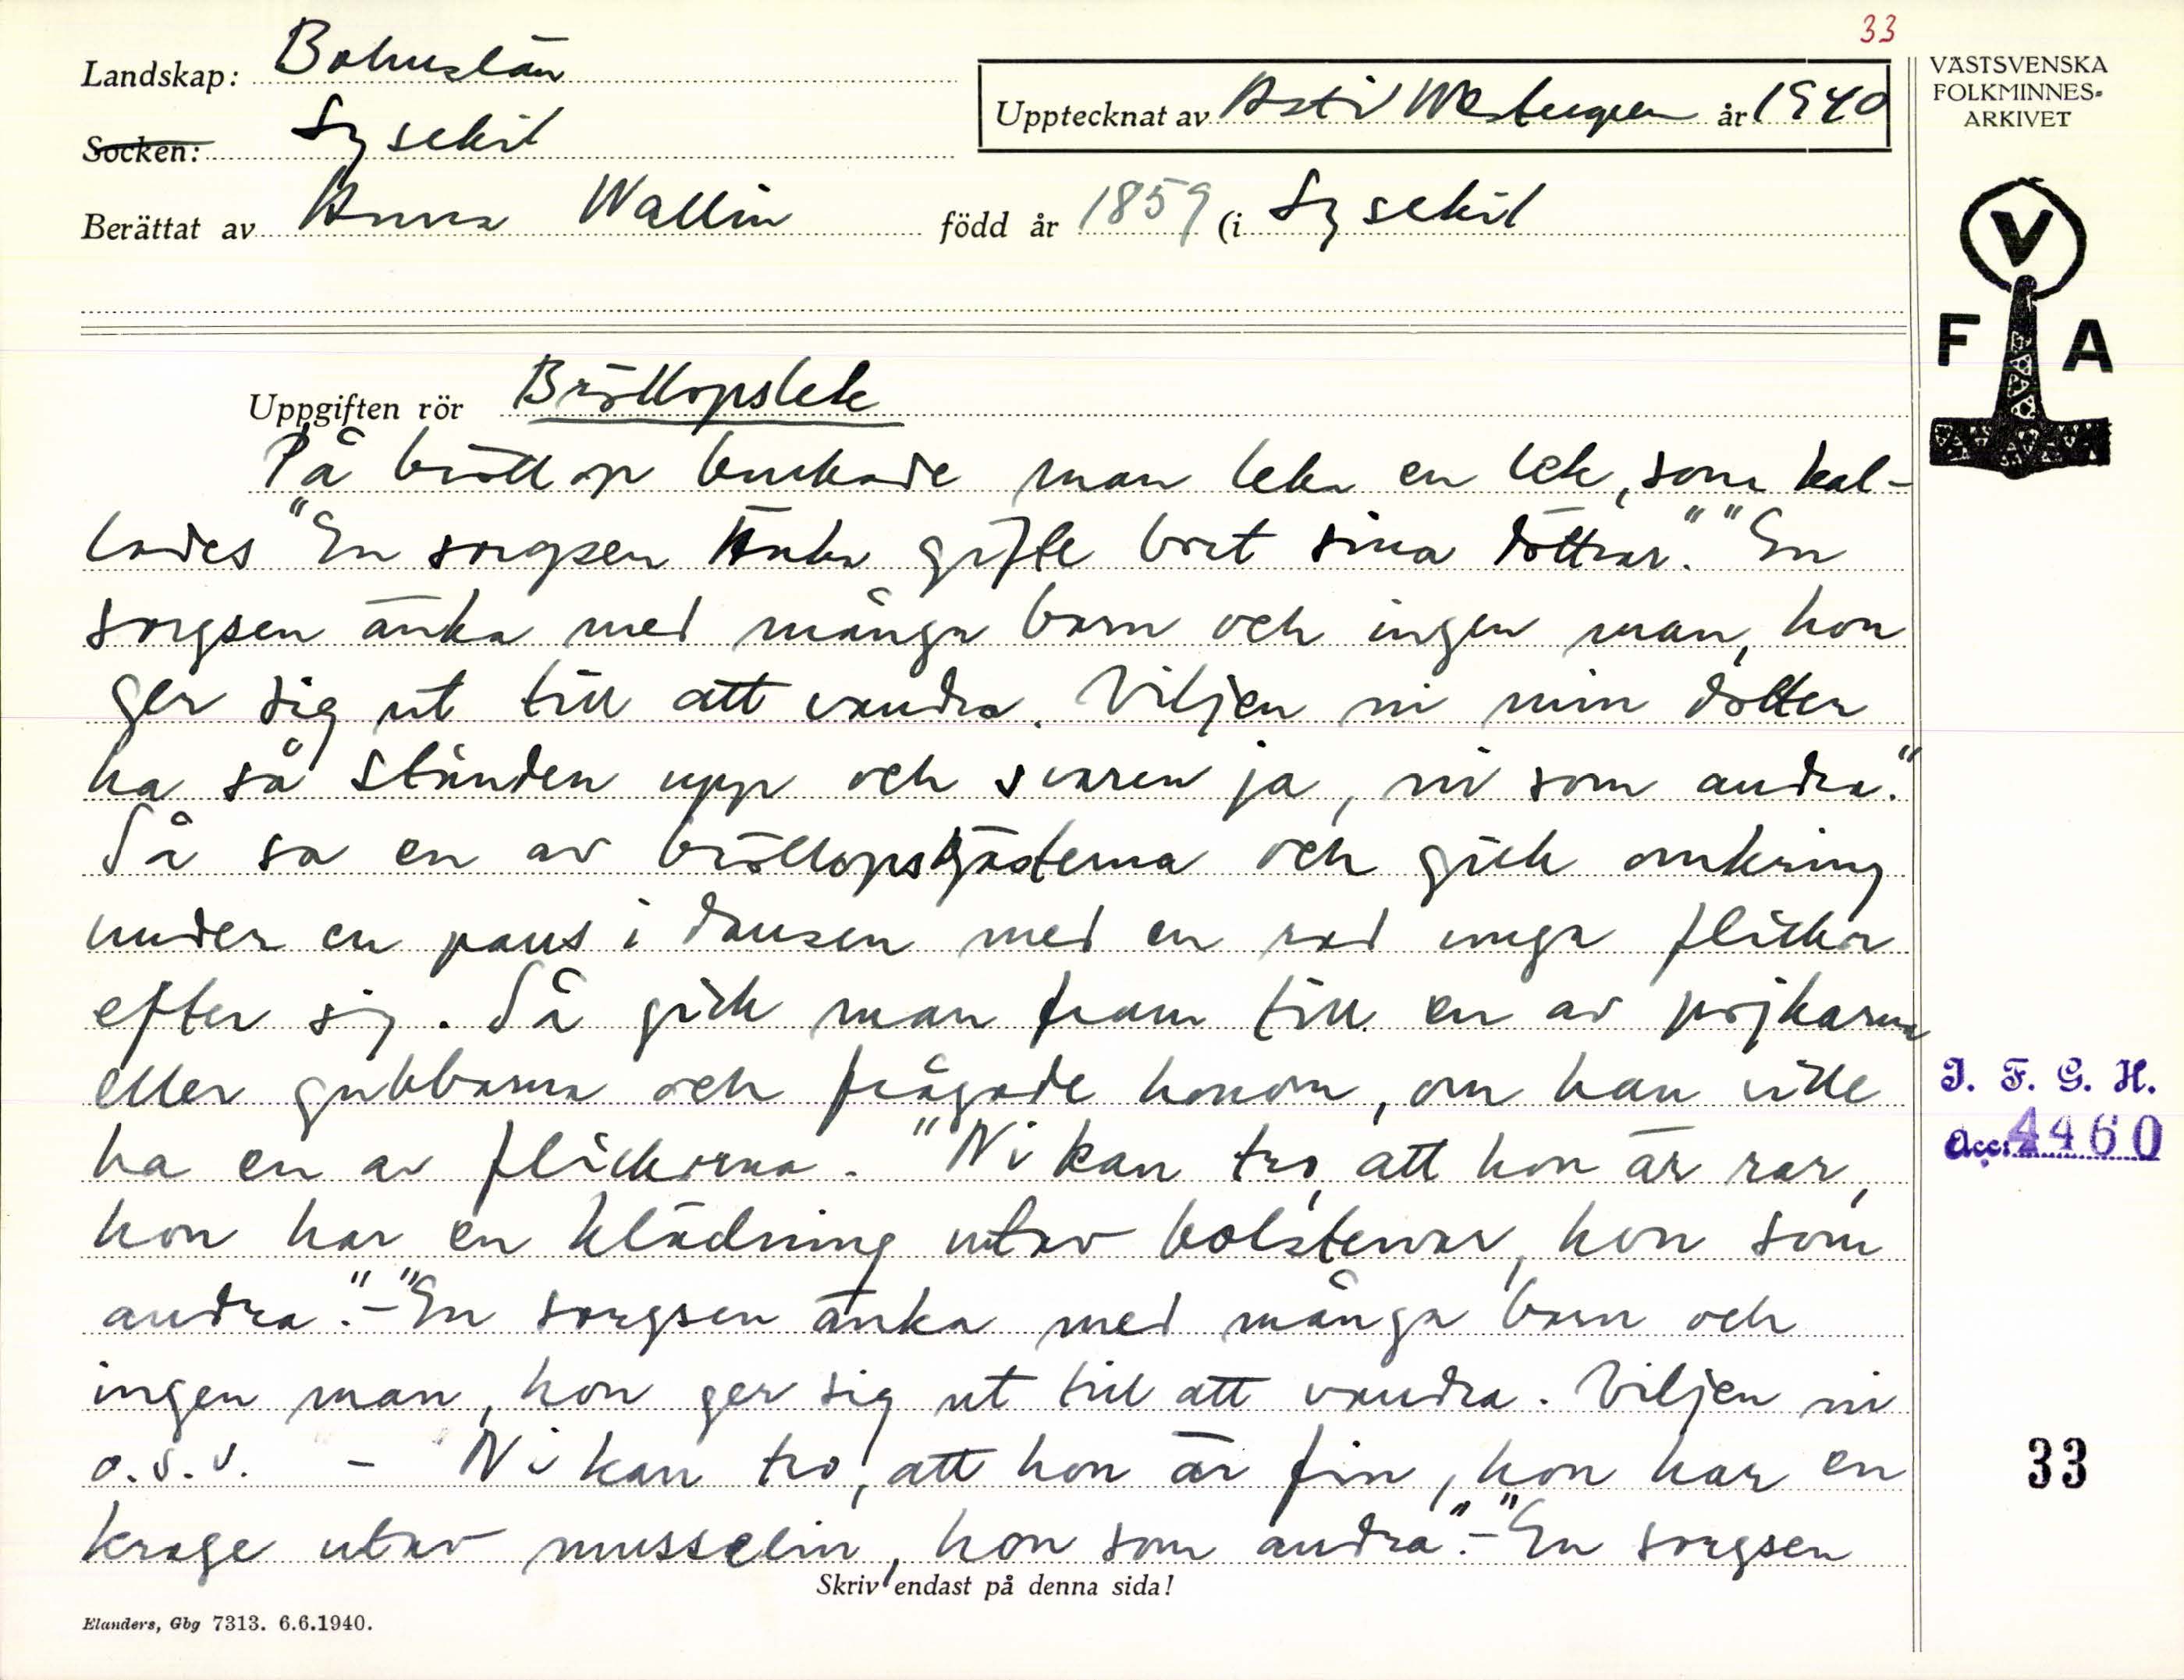 33
Landskap: Bohuslän
Socken: Lysekil
Upptecknat av Astri Westergren år 1940
VÄSTSVENSKA
FOLKMINNES-
ARKIVET
Berättat av Anna Wallin född år 1859 (i Lysekil
V
F A
Uppgiften rör Bröllopslek
På bröllop brukade man leka en lek, som kal-
lades "En sorgsen Änka gifte bort sina döttrar." "En
sorgsen änka med många barn och ingen man, hon
ger sig ut till att vandra. Viljen ni min dotter
ha så stånden upp och svaren ja, ni som andra."
Så sa en av bröllopsgästerna och gick omkring
under en paus i dansen med en rad unga flickor
efter sig. Så gick man fram till en av pojkarna
eller gubbarna och frågade honom, om han ville
ha en av flickorna. "Ni kan tro, att hon är rar,
hon har en klädning utav bolstervar, hon som
andra." - "En sorgsen änka med många barn och
ingen man, hon ger sig ut till att vandra. Viljen ni
o.s.v. - Ni kan tro, att hon är fin, hon har en
krage utav musselin, hon som andra." - "En sorgsen
Skriv endast på denna sida!
Elanders, Gbg 7313. 6.6.1940.
I. F. G. H.
Acc: 4460
33